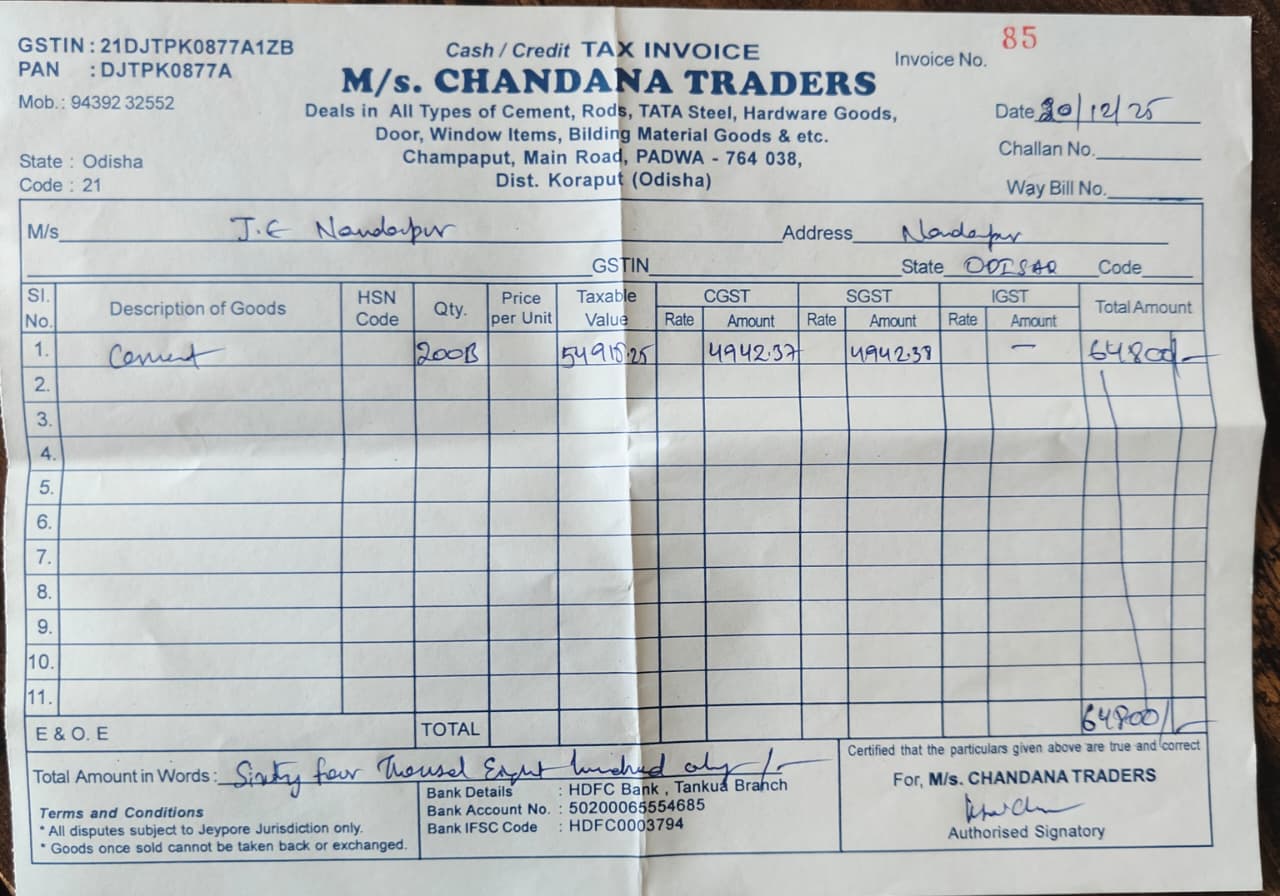 GSTIN : 21DJTPK0877A1ZB
PAN : DJTPK0877A
Mob.: 94392 32552
State : Odisha
Code : 21
Cash / Credit TAX INVOICE
M/s. CHANDANA TRADERS
Deals in All Types of Cement, Rods, TATA Steel, Hardware Goods,
Door, Window Items, Bilding Material Goods & etc.
Champaput, Main Road, PADWA - 764 038,
Dist. Koraput (Odisha)
Invoice No. 85
Date 20/12/25
Challan No.
Way Bill No.
M/s J.E Nandapur Address Nandapur
GSTIN State ODISAA Code
Sl. No. Description of Goods HSN Code Qty. Price per Unit Taxable Value CGST SGST IGST Total Amount
Rate Amount Rate Amount Rate Amount
1. Cement 200B 54915.25 4942.37 4942.38 — 64800/-
2.
3.
4.
5.
6.
7.
8.
9.
10.
11.
E & O. E TOTAL 64800/-
Total Amount in Words : Sixty four Thousd Eight hundred only/-
Terms and Conditions
* All disputes subject to Jeypore Jurisdiction only.
* Goods once sold cannot be taken back or exchanged.
Bank Details : HDFC Bank , Tankua Branch
Bank Account No. : 50200065554685
Bank IFSC Code : HDFC0003794
Certified that the particulars given above are true and correct
For, M/s. CHANDANA TRADERS
Authorised Signatory